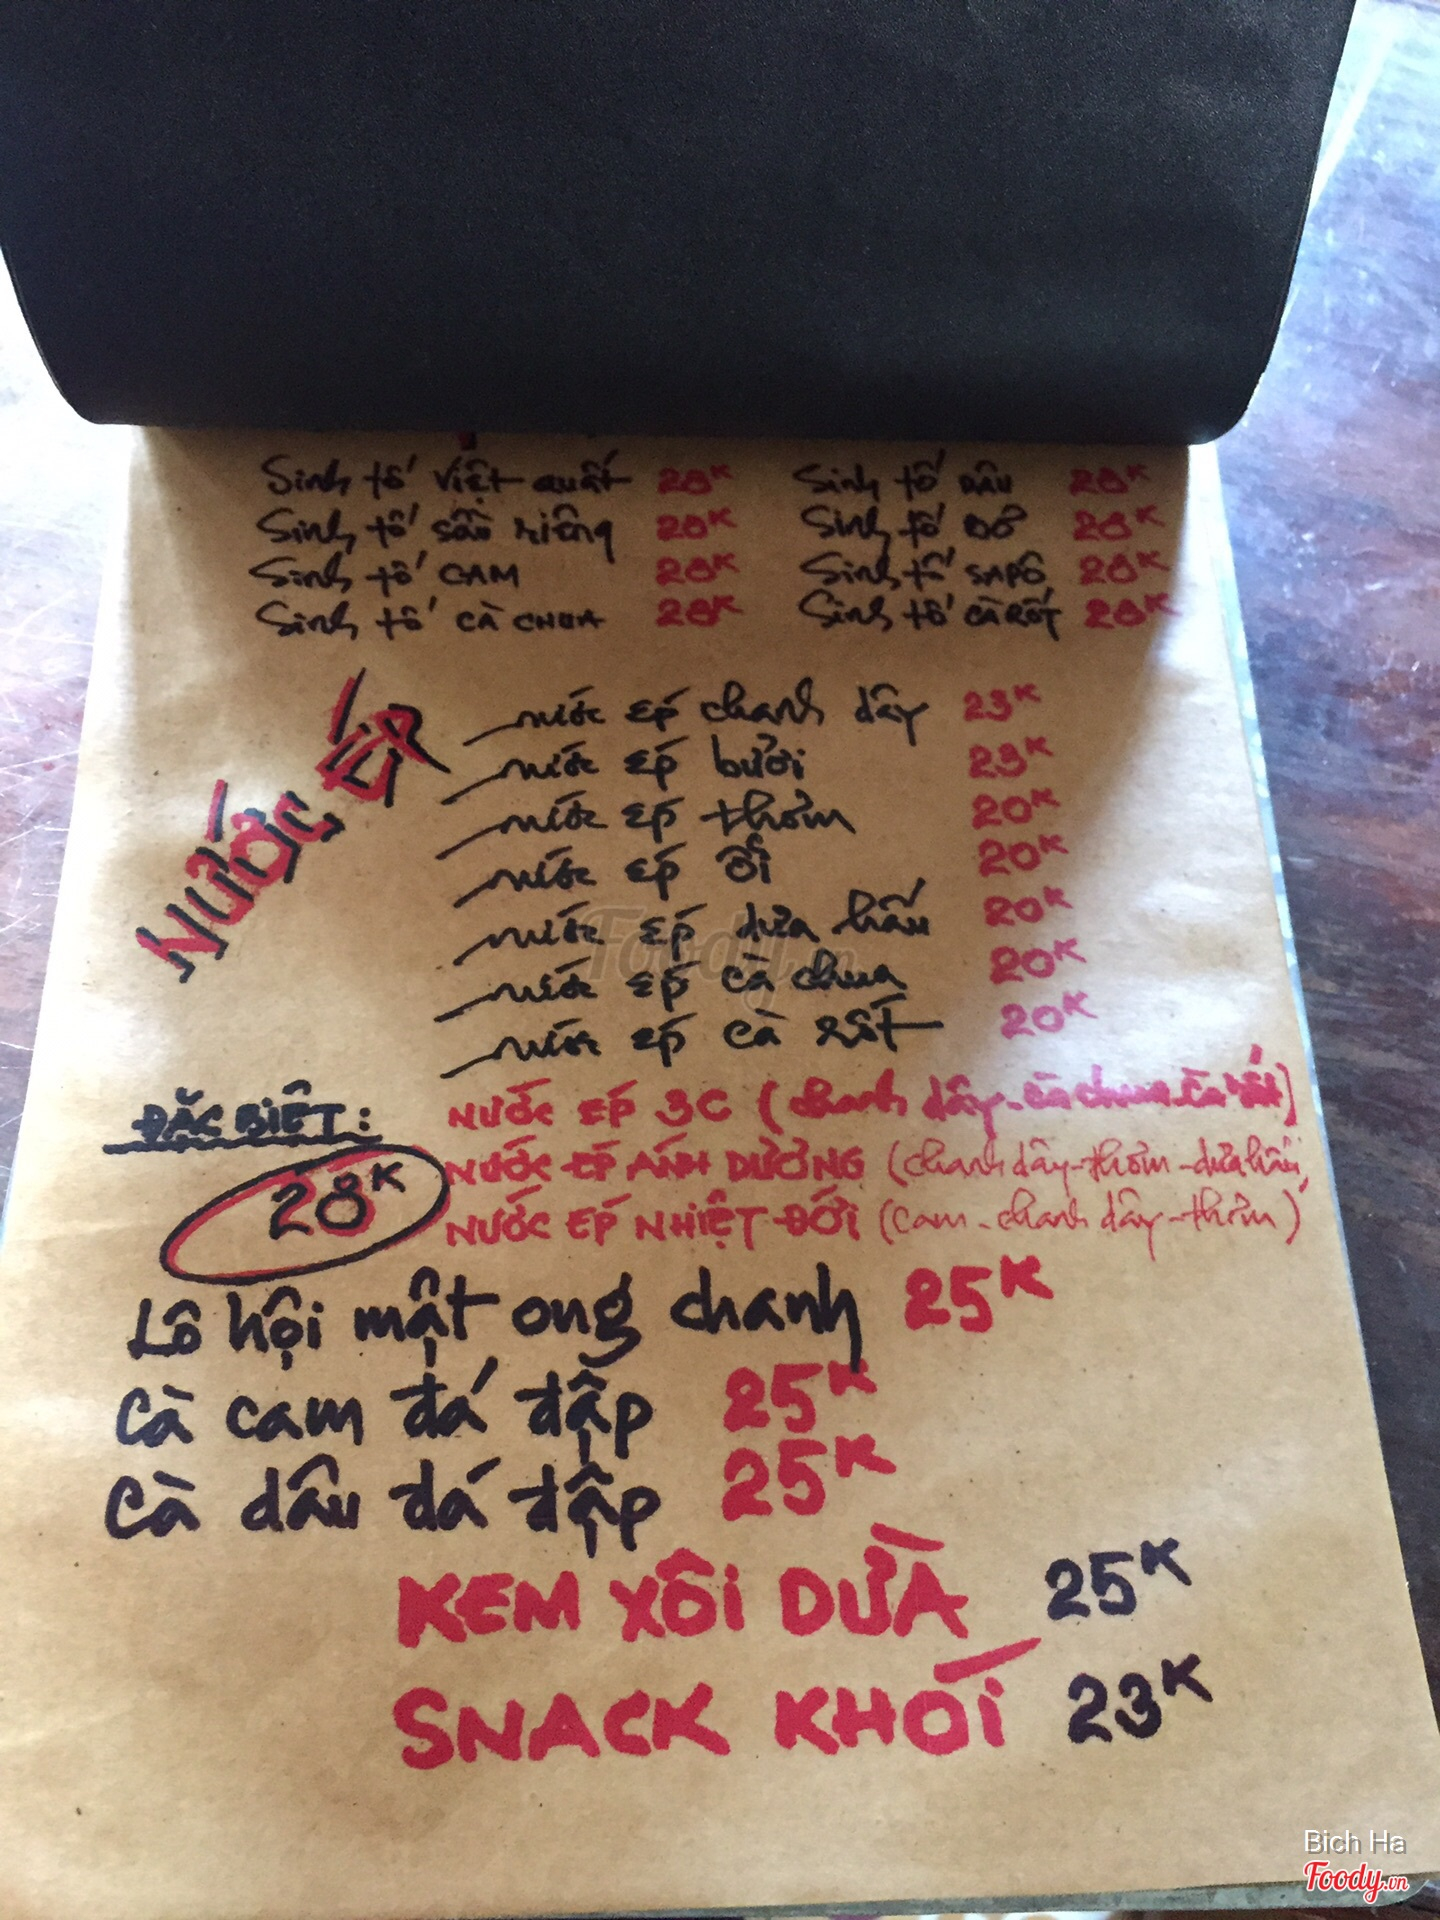 Sinh tố việt quất 28K Sinh tố DÂU 28K
Sinh tố sầu riêng 28K Sinh tố BƠ 28K
Sinh tố CAM 28K Sinh tố SAPÔ 28K
Sinh tố CÀ CHUA 28K Sinh tố CÀ RỐT 28K
NƯỚC ÉP
nước ép chanh dây 23K
nước ép bưởi 23K
nước ép thơm 20K
nước ép ổi 20K
nước ép dưa hấu 20K
nước ép cà chua 20K
nước ép cà rốt 20K
ĐẶC BIỆT:
28K
NƯỚC ÉP 3C (chanh dây-cà chua-cà rốt)
NƯỚC ÉP ÁNH DƯƠNG (chanh dây-thơm-dưa hấu)
NƯỚC ÉP NHIỆT ĐỚI (cam-chanh dây-thơm)
Lô hội mật ong chanh 25K
Cà cam đá đập 25K
Cà dâu đá đập 25K
KEM XÔI DỪA 25K
SNACK KHÓI 23K
Foody.vn
Bich Ha
Foody.vn